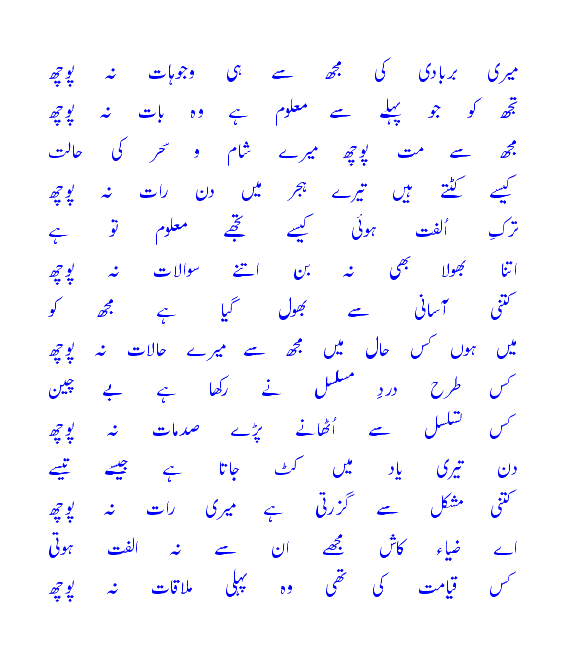 میری بربادی کی مجھ سے ہی وجوہات نہ پوچھ
تجھ کو جو پہلے سے معلوم ہے وہ بات نہ پوچھ
مجھ سے مت پوچھ میرے شام و سحر کی حالت
کیسے کٹتے ہیں تیرے ہجر میں دن رات نہ پوچھ
ترکِ اُلفت ہوئی کیسے تجھے معلوم تو ہے
اتنا بھولا بھی نہ بن اتنے سوالات نہ پوچھ
کتنی آسانی سے بھول گیا ہے مجھ کو
میں ہوں کس حال میں مجھ سے میرے حالات نہ پوچھ
کس طرح دردِ مسلسل نے رکھا ہے بے چین
کس تسلسل سے اُٹھانے پڑے صدمات نہ پوچھ
دن تیری یاد میں کٹ جاتا ہے جیسے تیسے
کتنی مشکل سے گزرتی ہے میری رات نہ پوچھ
اے ضیاء کاش مجھے ان سے نہ الفت ہوتی
کس قیامت کی تھی وہ پہلی ملاقات نہ پوچھ